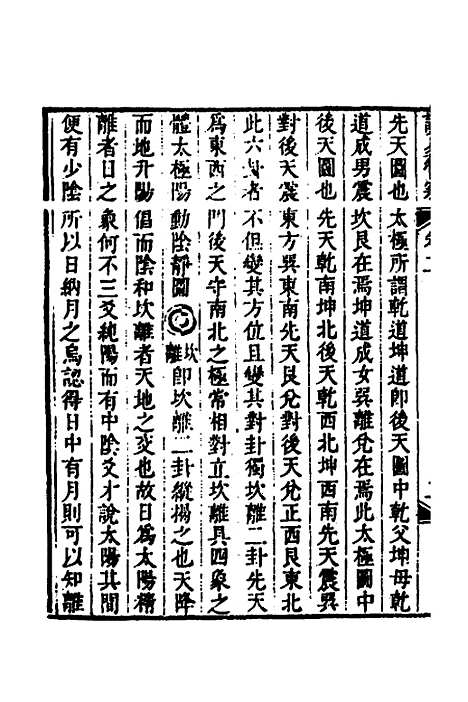 先天圖也太極所謂乾道坤道即後天圖中乾父坤母乾
道成男震坎艮在焉坤道成女巽離兌在焉此太極圖中
後天圖也先天乾南坤北後天乾西北坤西南先天震巽
對後天震東方巽東南先天艮兌對後天兌正西艮東北
此六卦者不但變其方位且變其對卦獨坎離二卦先天
為東西之門後天守南北之極常相對立坎離具四象之
體太極陽動陰靜圖坎離即坎離二卦縱揚之也天降
而地升陽倡而陰和坎離者天地之交也故日為太陽精
離者日之象何不三爻純陽而有中陰爻才說太陽其間
便有少陰所以日納月之烏認得日中有月則可以知離